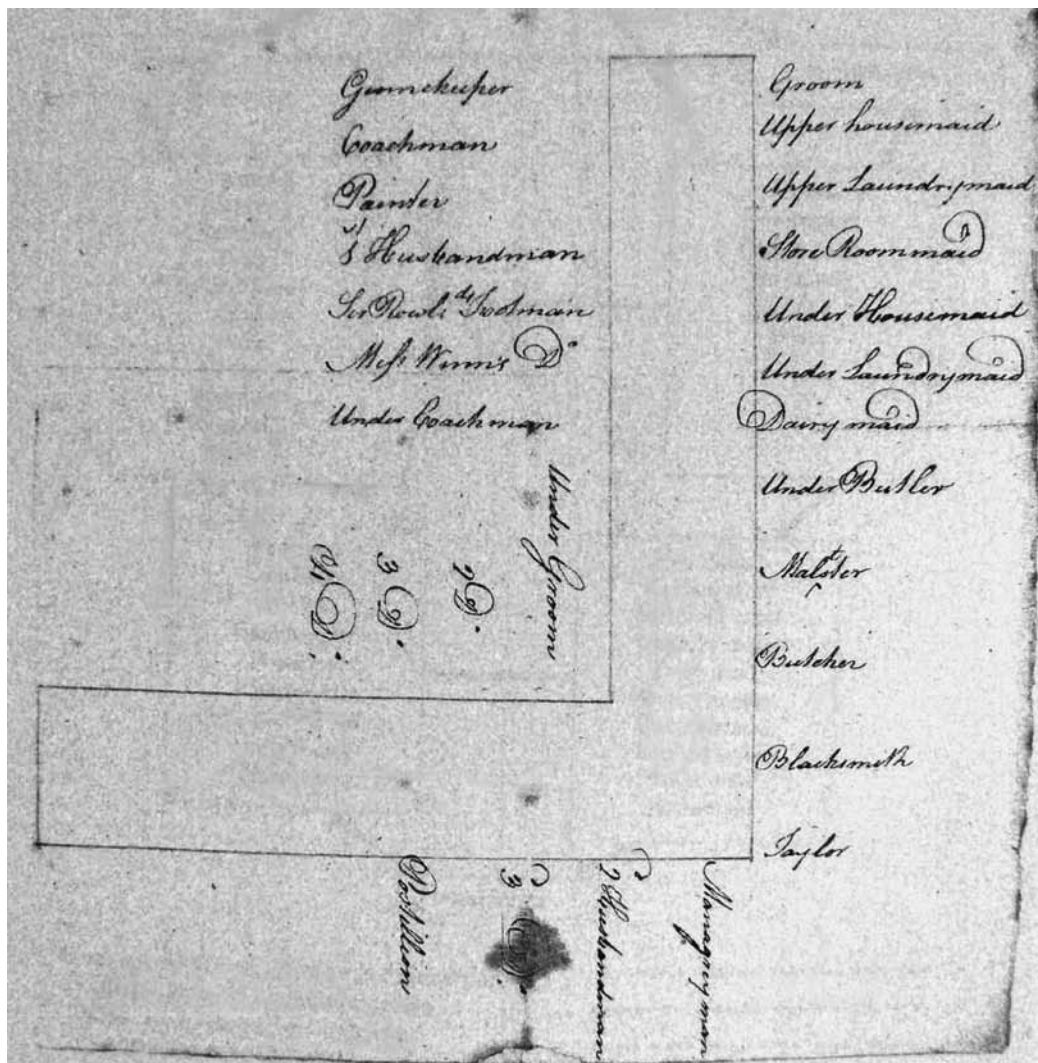 Gamekeeper
Coachman
Painter
1st Husbandman
Sir Rowlds Footman
Miss Winn's Do
Under Coachman
Under Groom
2 Do
3 Do
4 Do
Groom
Upper housemaid
Upper Laundrymaid
Store Room maid
Under Housemaid
Under Laundrymaid
Dairy maid
Under Butler
Malster
Butcher
Blacksmith
Taylor
Managery man
2 Husbandman
3 Do
Postillion